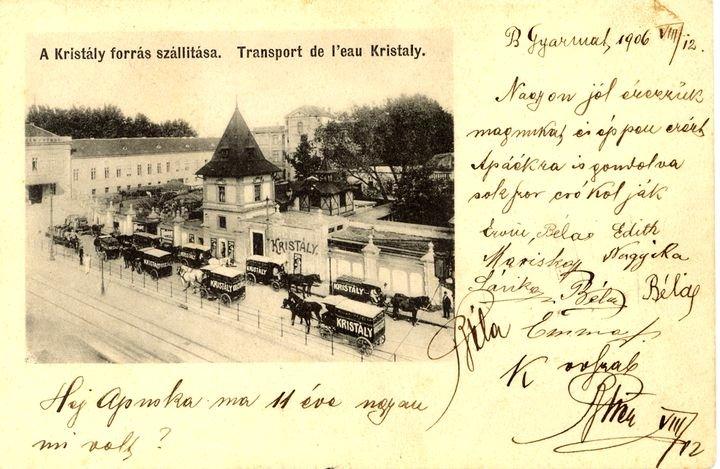 A Kristály forrás szállitása. Transport de l'eau Kristaly.
KRISTÁLY
KRISTÁLY
KRISTÁLY
KRISTÁLY
KRISTÁLY
KRISTÁLY
B Gyarmat, 1906 VIII/12.
Nagyon jól érezzük
magunkat, és éppen ezért
Apáckra is gondolva
sokszor csókolják
Ervin, Béla Edith
Mariska Nagyika
Sárika Béla Béla
Béla Emma
K
VIII/12
Hej Apuska ma 11 éve ugyan
mi volt?